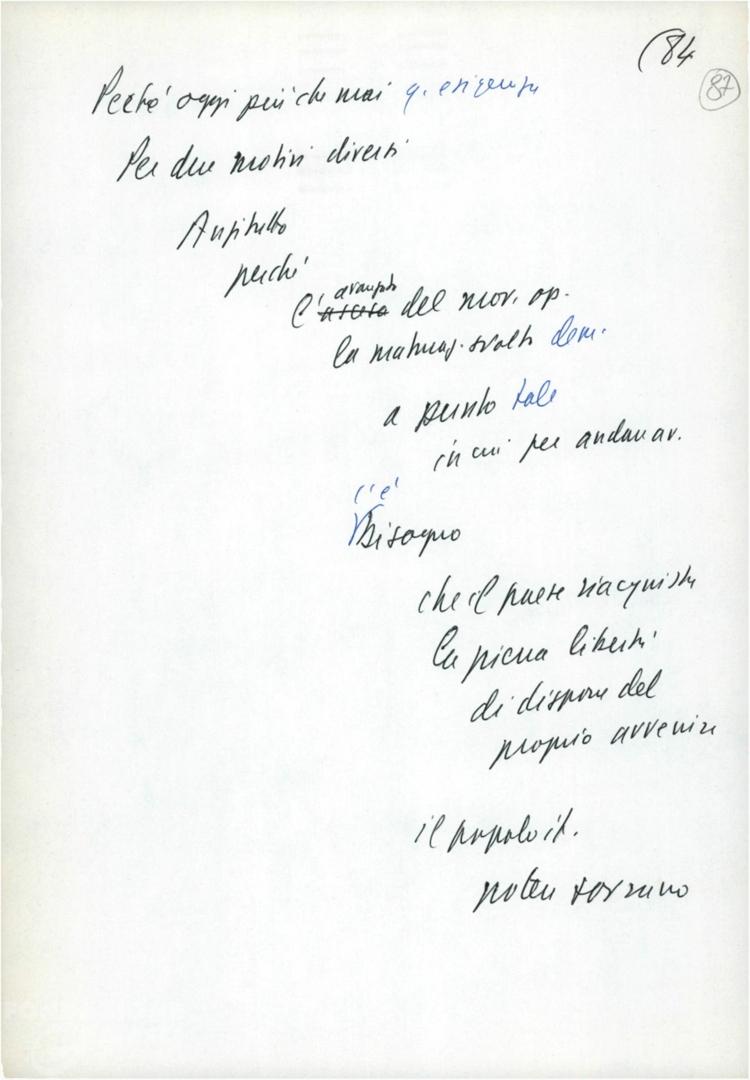 (84
87
Perché oggi più che mai q. esigenza
Per due motivi diversi
Anzitutto
perché
avanzata
l'ascesa del mov. op.
la maturaz. svolta dem.
a punto tale
in cui per andar av.
c'è
Bisogno
che il paese riacquista
la piena libertà
di disporre del
proprio avvenire
il popolo it.
potere sovrano